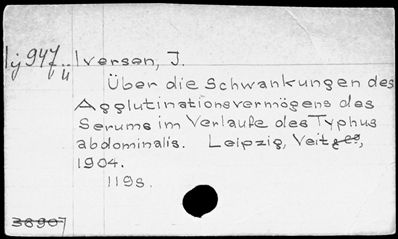 Ij 947 ü Iversen, J.
Über die Schwankungen des
Agglutinationsvermögens des
Serums im Verlaufe des Typhus
abdominalis. Leipzig, Veit
1904.
119s.
36907